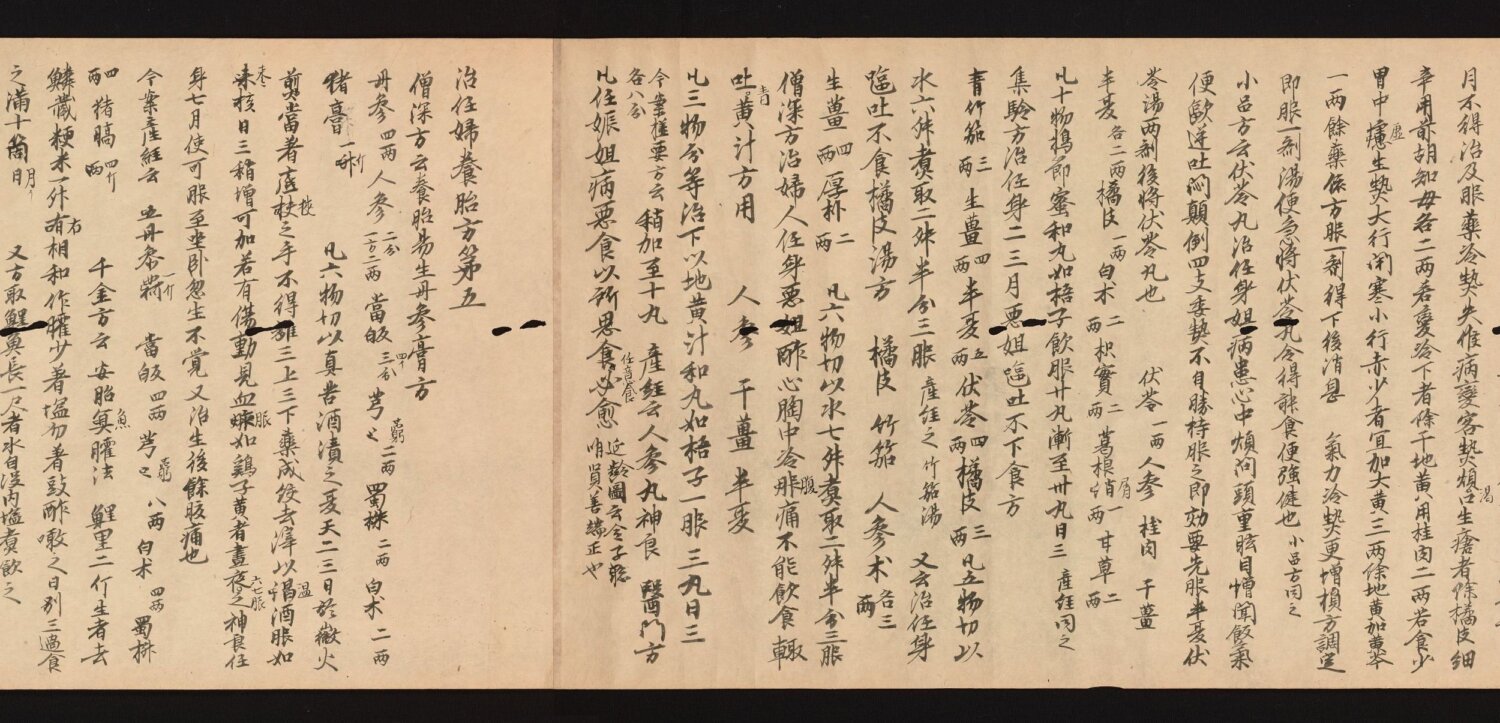 月不得治及服藥冷熱失惟病變客熱煩呂渴生瘡者除橘皮細
辛用前胡知母各二兩若變冷下者除干地黃用桂肉二兩若食少
胃中虛生熱大行閇塞小行赤少者宜加大黃三兩除地黃加黃芩
一兩餘藥依方服一劑得下後消息 氣力冷熱更增損方調定
即服一劑湯便急將伏苓丸令得能食便強健也 小品方同之
小品方云伏苓丸治任身姐病患心中煩悶頭重眩目憎聞飯氣
便歐逆吐悶顛倒四支委熱不自勝持服之即効要先服半夏伏
苓湯兩劑後將伏苓丸也 伏苓一兩 人參 桂肉 干薑
半夏各二兩 橘皮一兩 白术二兩 枳實二兩 葛根屑一兩 甘草二兩
凡十物搗篩蜜和丸如梧子飲服廿丸漸至卅丸日三 產經同之
集驗方治任身二三月惡姐嘔吐不下食方
青竹茹三兩 生薑四兩 半夏五兩 伏苓四兩 橘皮三兩 凡五物切以
水六升煮取二升半分三服 產經之竹茹湯 又云治任身
嘔吐不食橘皮湯方 橘皮 竹茹 人參 术各三兩
生薑四兩 厚朴二兩 凡六物切以水七升煮取二升半分三服
僧深方治婦人任身惡姐酢心胸中冷腹痛不能飲食輒
吐青黃汁方用 人參 干薑 半夏
凡三物分等治下以地黃汁和丸如梧子一服三丸日三
今案極要方云各八分 稍加至十丸 產經云人參丸神良 醫門方
凡任娠姐病惡食以所思食任意食必愈 延齡圖云令子聰明賢善端正也
治任婦養胎方第五
僧深方云養胎易生丹參膏方
丹參四兩 人參二分一方二兩 當皈三分 芎々二兩 蜀椒二兩 白术二兩
猪膏一斤 凡六物切以真苦酒漬之夏天二三日於微火
煎當着底校之手不得離三上三下藥成絞去滓以溫酒服如
棗核日三稍增可加若有傷動見血服如鷄子黃者晝夜六七服之神良任
身七月便可服至坐卧忽生不覺又治生後餘腹痛也
今案產經云 丹參一斤 當皈四兩 芎々八兩 白术四兩 蜀椒
四兩 猪膏四斤 千金方云安胎魚臛法 鯉里二斤生者去
鱗藏粳米一升右相和作臛少著塩勿著豉酢噉之日別三過食
之滿十箇月 又方取鯉魚長一尺者水自沒內塩煮飲之